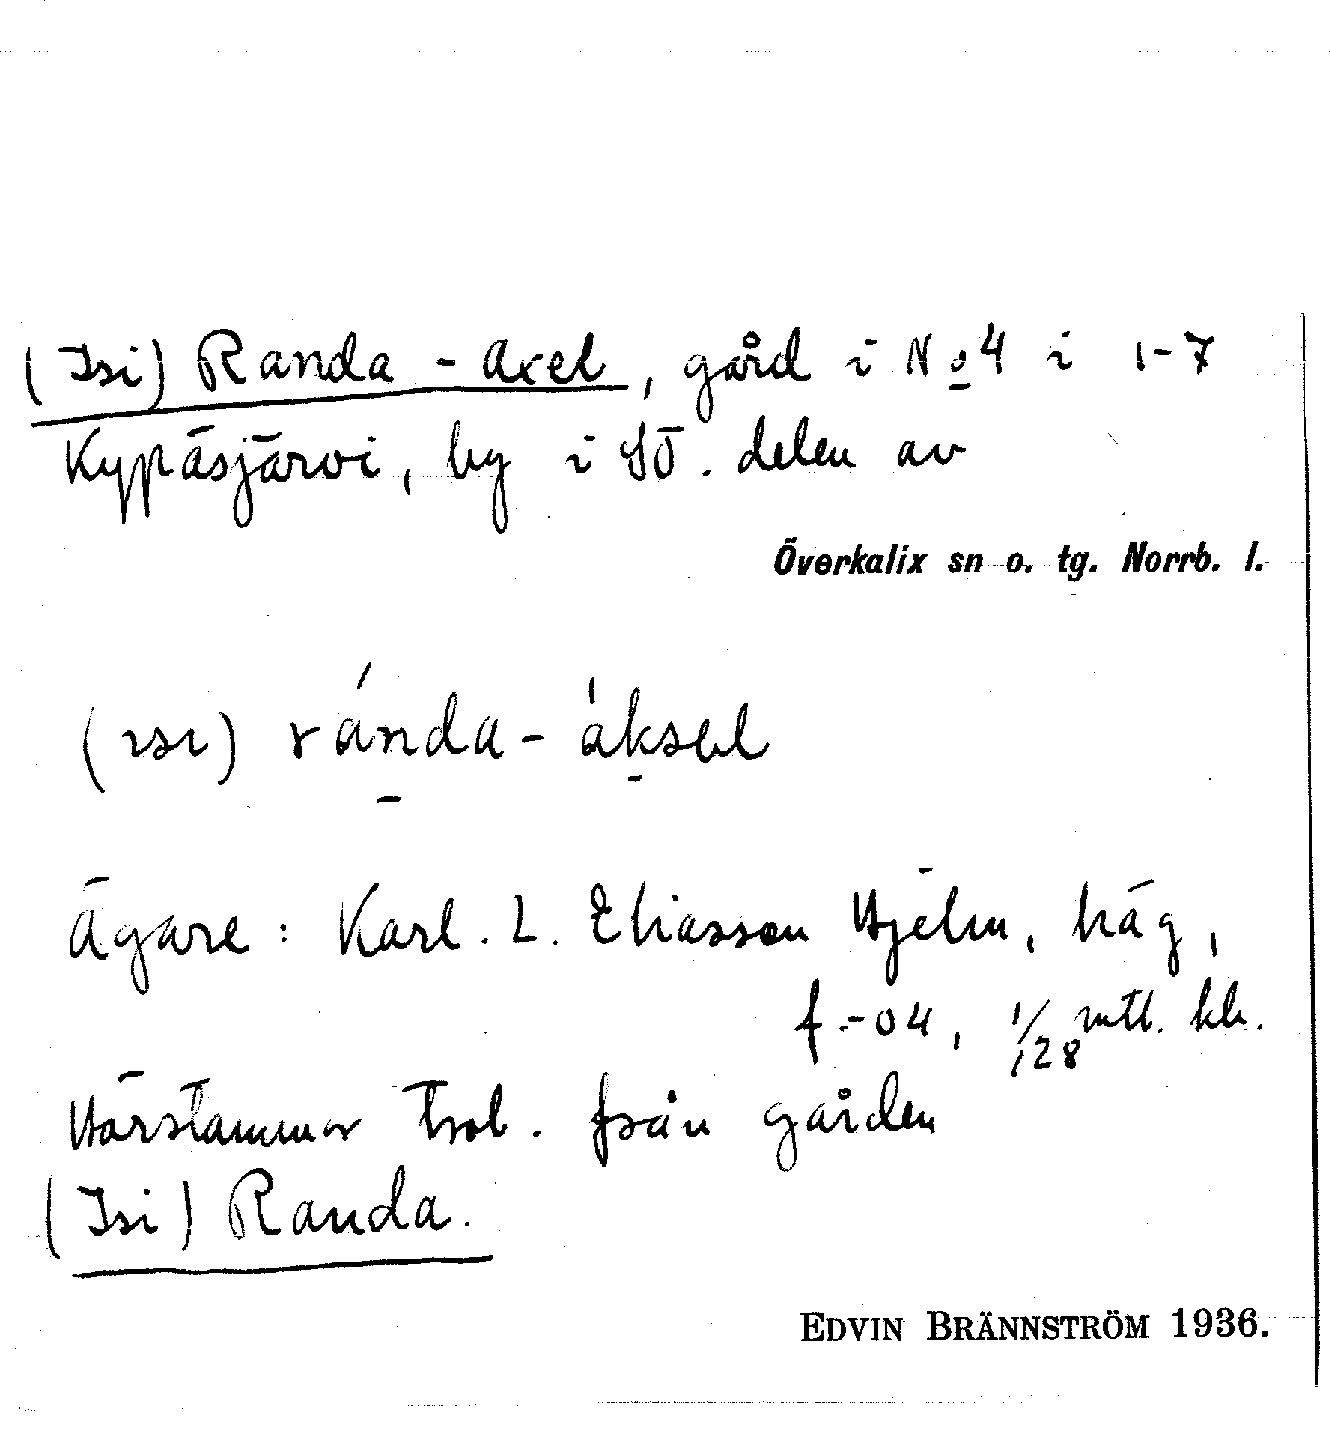 (Isi) Randa-Axel, gård i No 4 i 1-7
Kypäsjärvi, by i SÖ. delen av
Överkalix sn o. tg. Norrb. l.
(ısı) ránda-áksel
Ägare: Karl. L. Eliasson Hjelm, häg,
f.-04, 1/128 mtl. kr.
Härstammar trol. från gården
(Isi) Randa.
EDVIN BRÄNNSTRÖM 1936.